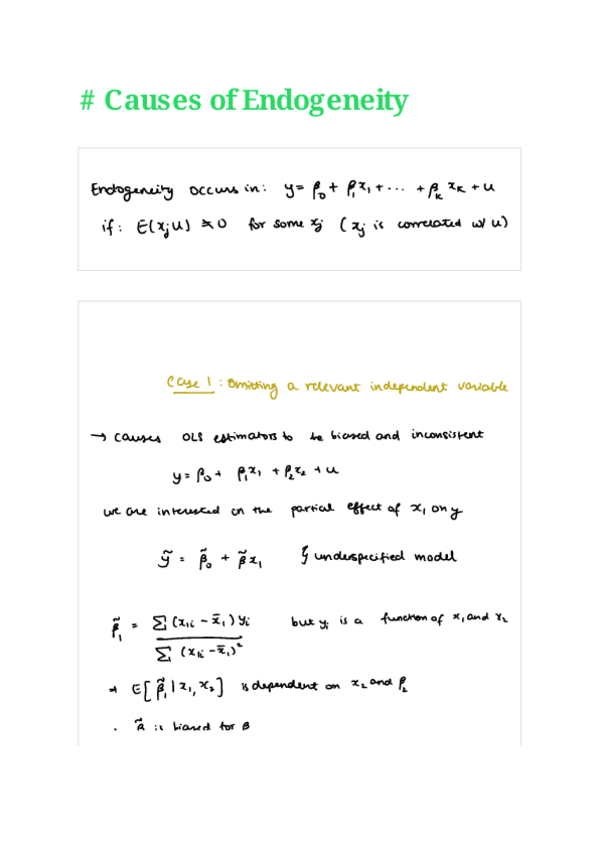 # Causes of Endogeneity
Endogeneity occurs in: y = β₀ + β₁x₁ + ... + βₖxₖ + u
if: E(xⱼu) ≠ 0 for some xⱼ (xⱼ is correlated w/ u)
Case 1: Omitting a relevant independent variable
→ causes OLS estimators to be biased and inconsistent
y = β₀ + β₁x₁ + β₂x₂ + u
we are interested in the partial effect of x₁ on y
ỹ = β̃₀ + β̃x₁ } underspecified model
β̃₁ = Σ(x₁ᵢ - x̄₁)yᵢ / Σ(x₁ᵢ - x̄₁)² but yᵢ is a function of x₁ and x₂
⇒ E[β̃₁|x₁,x₂] is dependent on x₂ and β₂
β̃ is biased for β